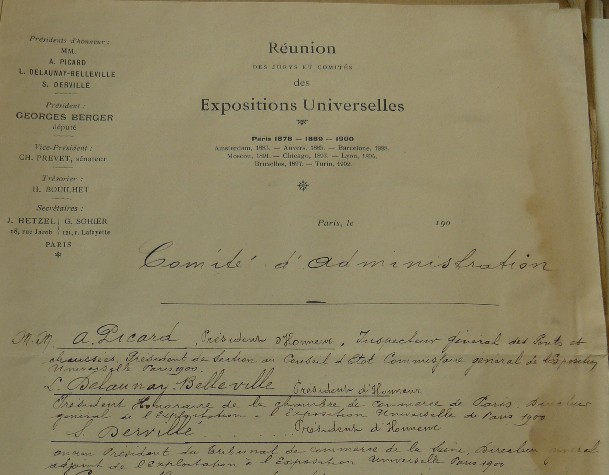 Présidents d'honneur :
MM.
A. PICARD
L. DELAUNAY-BELLEVILLE
S. DERVILLÉ
Président :
GEORGES BERGER
député
Vice-Président :
CH. PREVET, sénateur
Trésorier :
H. BOUILHET
Secrétaires :
J. HETZEL; G. SOHIER
18, rue Jacob ; 121, r. Lafayette
PARIS
Réunion
DES JURYS ET COMITÉS
des
Expositions Universelles
Paris 1878 — 1889 — 1900
Amsterdam, 1883. — Anvers, 1885. — Barcelone, 1888.
Moscou, 1891. — Chicago, 1893. — Lyon, 1894.
Bruxelles, 1897. — Turin, 1902.
Paris, le 190
Comité d'administration
M.M. A. Picard, Président d'Honneur, Inspecteur général des Ponts et
chaussées, Président de Section au Conseil d'Etat Commissaire général de l'Exposition
Universelle Paris 1900.
L. Delaunay-Belleville Président d'Honneur
Président Honoraire de la chambre de commerce de Paris. Directeur
général de l'Exploitation à l'Exposition Universelle de Paris 1900
S. Dervillé Président d'Honneur
ancien Président du Tribunal de commerce de la Seine, Directeur général
adjoint de l'Exploitation à l'Exposition Universelle Paris 1900